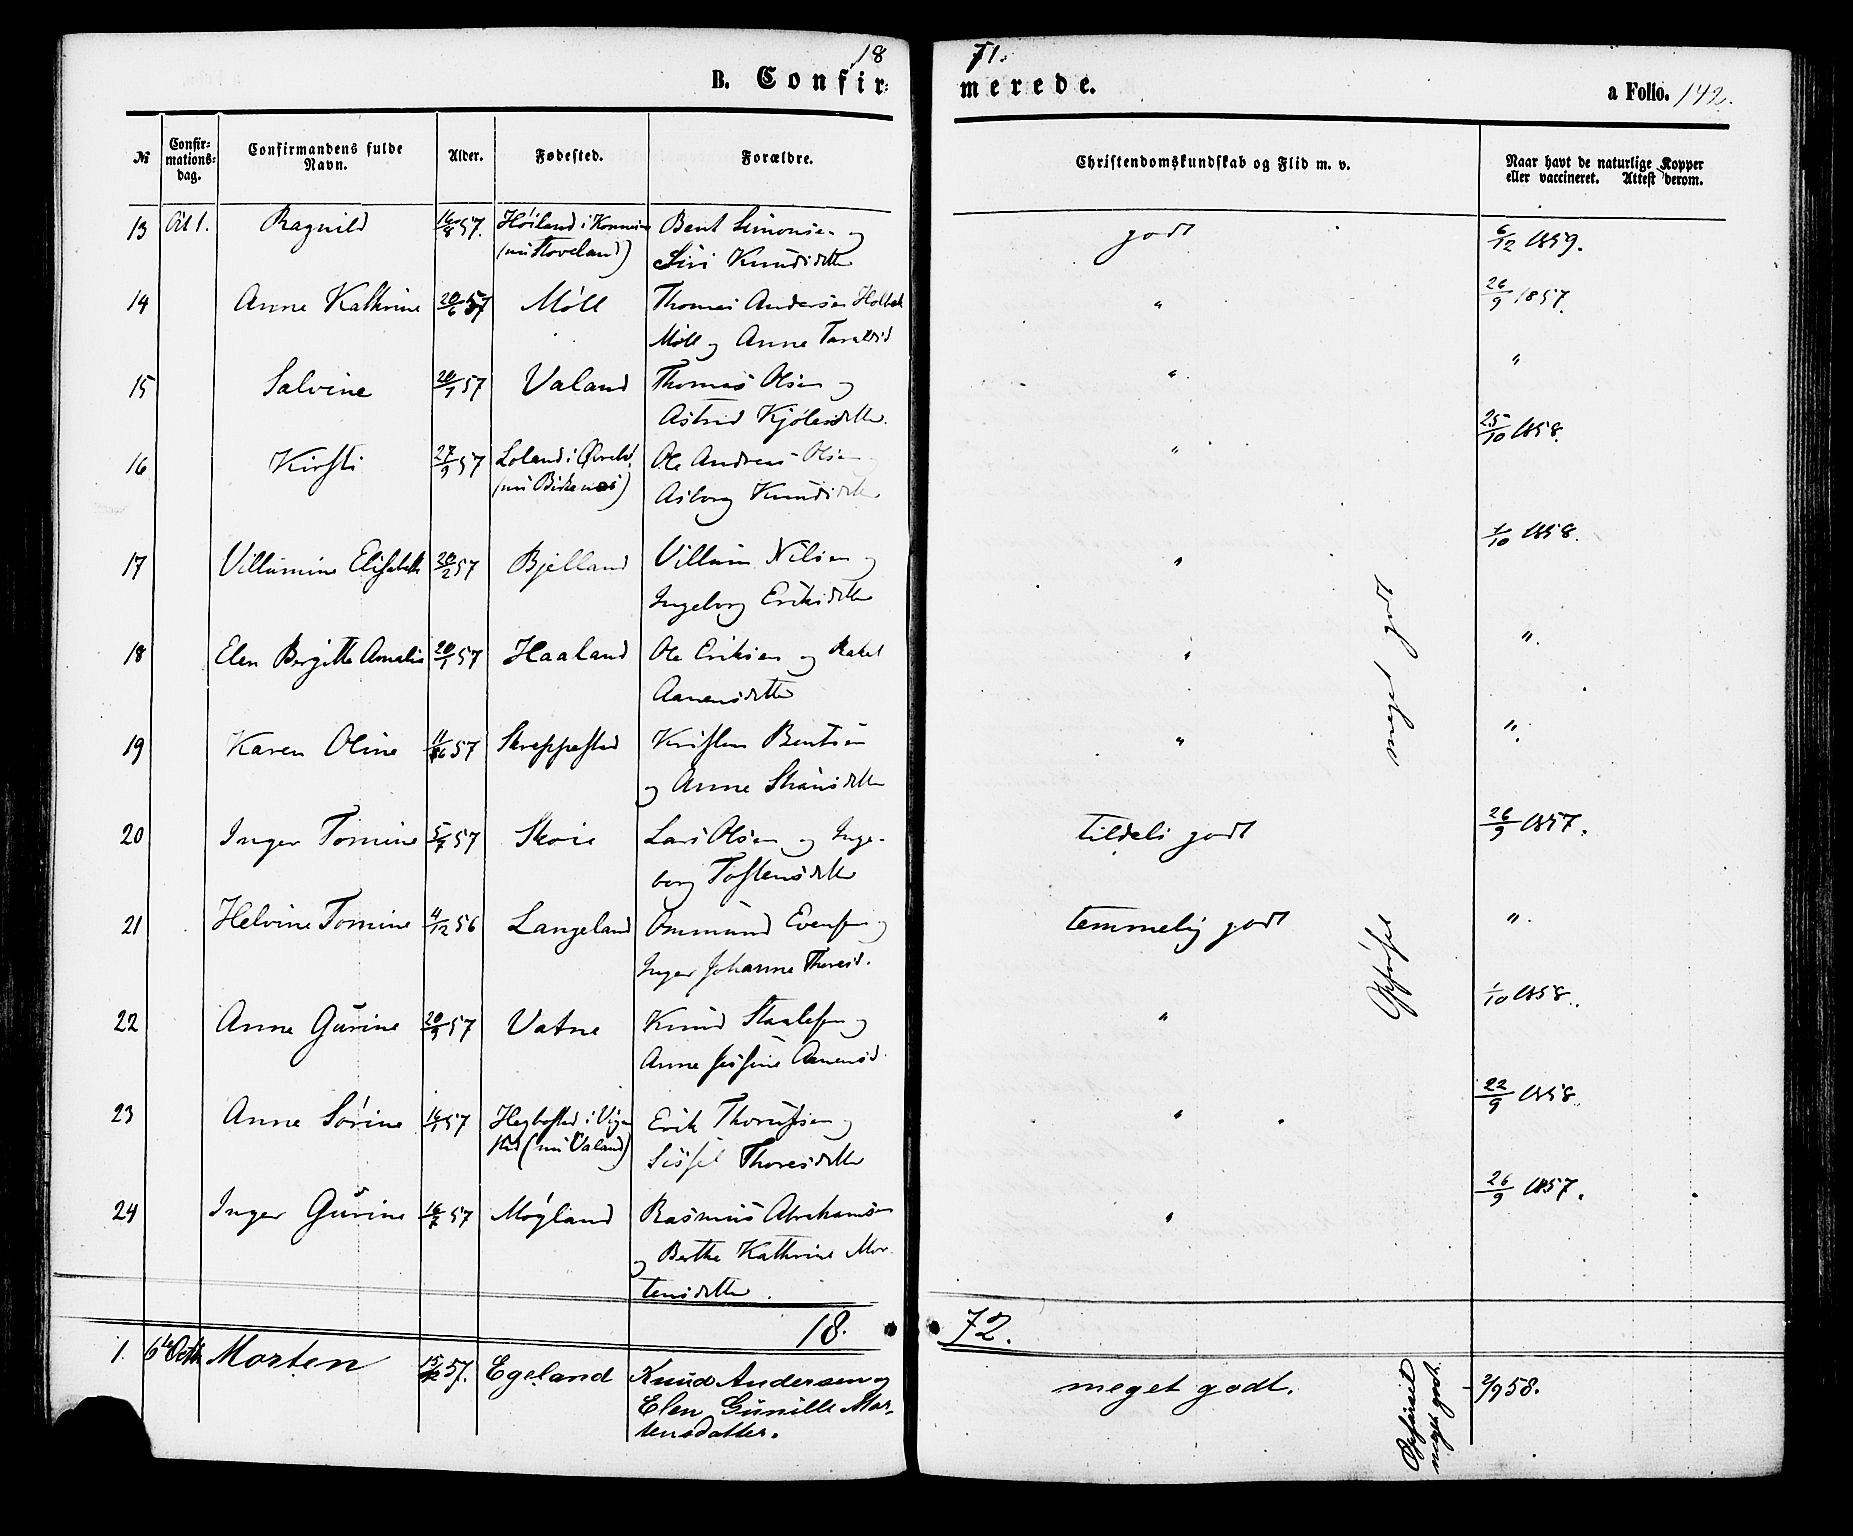 18 71.
B. Confir- merede. a Folio. 142.
№ Confir-mations-dag. Confirmandens fulde Navn. Alder. Fødested. Forældre. Christendomskundskab og Flid m. v. Naar havt de naturlige Kopper eller vaccineret. Attest derom.
13 Ragnild 16/8 57. Høiland i Bent Simonsen og godt 6/12 1859.
Siri Knudsdatter
14 Anne Kathrine 20/6 57 Møll Thomas Andersen " 26/9 1857.
Møll og Anne
15 Salvine 57 Valand Thomas Olsen og " "
Astrid
16 Kirsti 27/9 57 Loland i Ole Andreas Olsen " 25/10 1858.
(nu Birkenæs) Asborg Knudsdatter
17 Villumine Elisabeth 57 Bjelland Villum Nilsen og " 1/10 1858.
Ingeborg Eriksdatter
18 Elen Bergitte Amalia 20/1 57 Haaland Ole Eriksen og Rakel " "
Aanensdatter
19 Karen Oline 57 Skreppestad Kristen Bentsen " "
og Anne
20 Inger Tomine 5/7 57 Skoie Lars Olsen og Inge- tildels godt 26/9 1857.
borg Tostensdatter
21 Helvine Tomine 4/12 56 Langeland Ommund Evensen og temmelig godt "
Inger Johanne Theresd.
22 Anne Gurine 20/9 57 Vatne Knud Staalesen og " 1/10 1858.
Anne Aanensd.
23 Anne Sørine 57 Hegbostad i Erik og " 22/9 1858.
(nu Valand) Sissel Thoresdatter
24 Inger Gurine 57 Møgland Rasmus Abrahamsen " 26/9 1857.
og Berthe Kathrine Mor-
tensdatter.
meget godt
Opførsel
18. 72.
1. 6te Octb. Morten 57. Egeland Knud Andersen og meget godt. 2/9 58.
Elen Gunille Mor-
tensdatter.
Opførsel
meget godt.